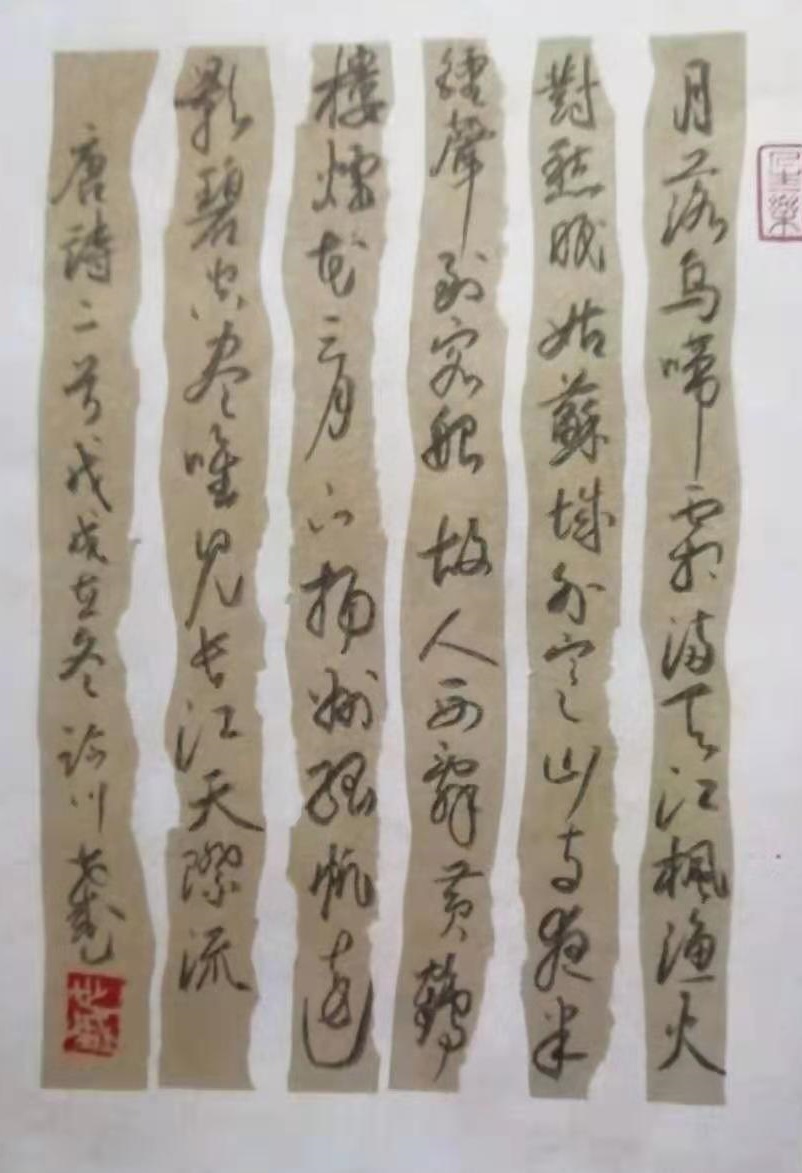 至樂
月落烏啼霜滿天江楓漁火
對愁眠姑蘇城外寒山寺夜半
鐘聲到客船 故人西辭黃鶴
樓煙花三月下揚州孤帆遠
影碧空尽唯見長江天際流
唐詩二首戊戌立冬 川世